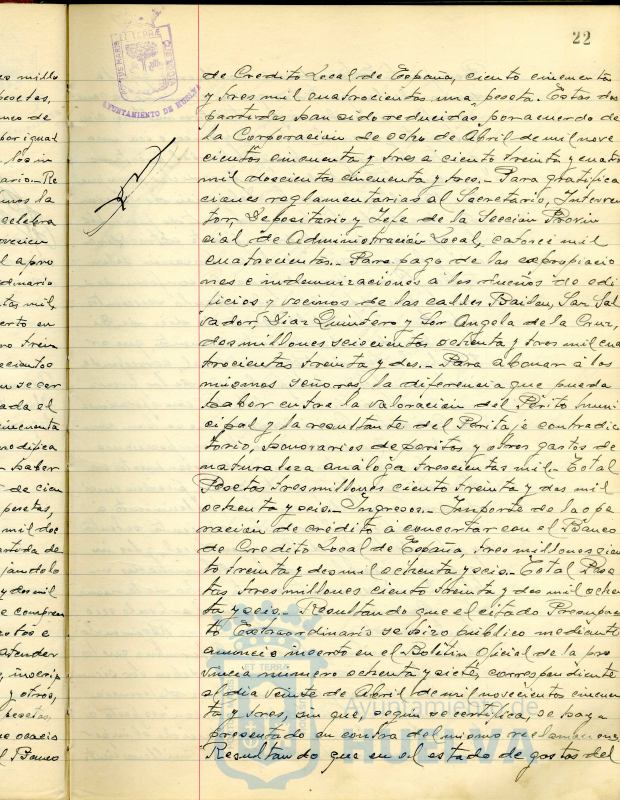 22
AYUNTAMIENTO DE HUELVA
de Credito Local de España, ciento cincuenta
y tres mil cuatrocientas una peseta. Estas dos
partidas han sido reducidas, por acuerdo de
la Corporacion de ocho de Abril de mil nove
cientos cincuenta y tres á ciento treinta y cuatro
mil doscientas cincuenta y tres.- Para gratifica
ciones reglamentarias al Secretario, Interven
tor, Depositario y Jefe de la Sección Provin
cial de Administración Local, catorce mil
cuatrocientas.- Para pago de las expropiacio
nes e indemnizaciones á los dueños de edi
ficios y vecinos de las calles Bailen, San Sal
vador, Diaz Quintero y Sor Angela de la Cruz,
dos millones seiscientos ochenta y tres mil cua
trocientas treinta y dos.- Para abonar á los
mismos señores, la diferencia que pueda
haber entre la valoración del Périto muni
cipal y la resultante del Peritaje contradic
tório, honorarios de peritos y otros gastos de
naturaleza análoga trescientas mil.- Total
Pesetas tres millones ciento treinta y dos mil
ochenta y seis.- Ingresos.- Importe de la ope
ración de crédito á concertar con el Banco
de Credito Local de España, tres millones cien
to treinta y dos mil ochenta y seis.- Total Pese
tas tres millones ciento treinta y dos mil ochen
ta y seis.- Resultando que el citado Presupues
to Extraordinario se hizo público mediante
anuncio inserto en el Boletín Oficial de la pro
vincia numero ochenta y siete, correspondiente
al dia veinte de Abril de mil novecientos cincuen
ta y tres, sin que, según se certifica, se haya
presentado en contra del mismo reclamaciones
Resultando que en el estado de gastos del
Ayuntamiento de
HUELVA